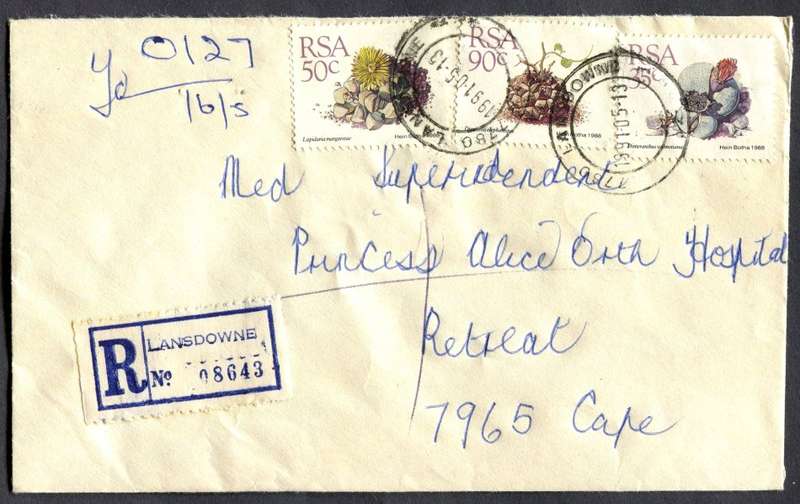 0127
RSA
50c
Hein Botha 1988
RSA
90c
Hein Botha 1988
RSA
35c
Hein Botha 1988
1991-05-13
1991-05-13
Med Superindendent
Princess Alice Orth Hospital
Retreat
7965 Cape
R
LANSDOWNE
No 08643